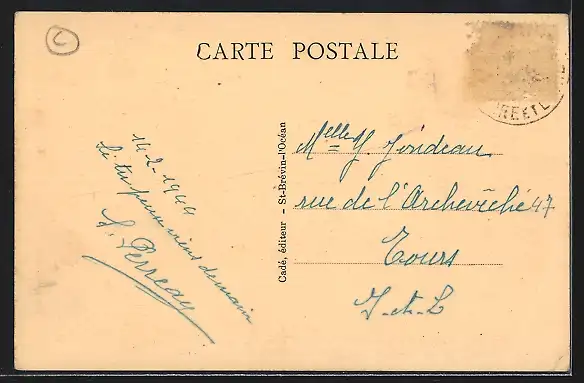 C
CARTE POSTALE
RE ET L
14-2-1944
Si tu peux viens demain
S. Perreau
Cadé, éditeur - St-Brévin-l'Océan
Melle Y. Jondeau
rue de l'Archevêché 47
Tours
I-et-L